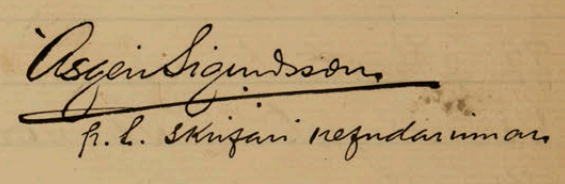 Ásgeir Sigurðsson.
p. t. skrifari nefndarinnar.